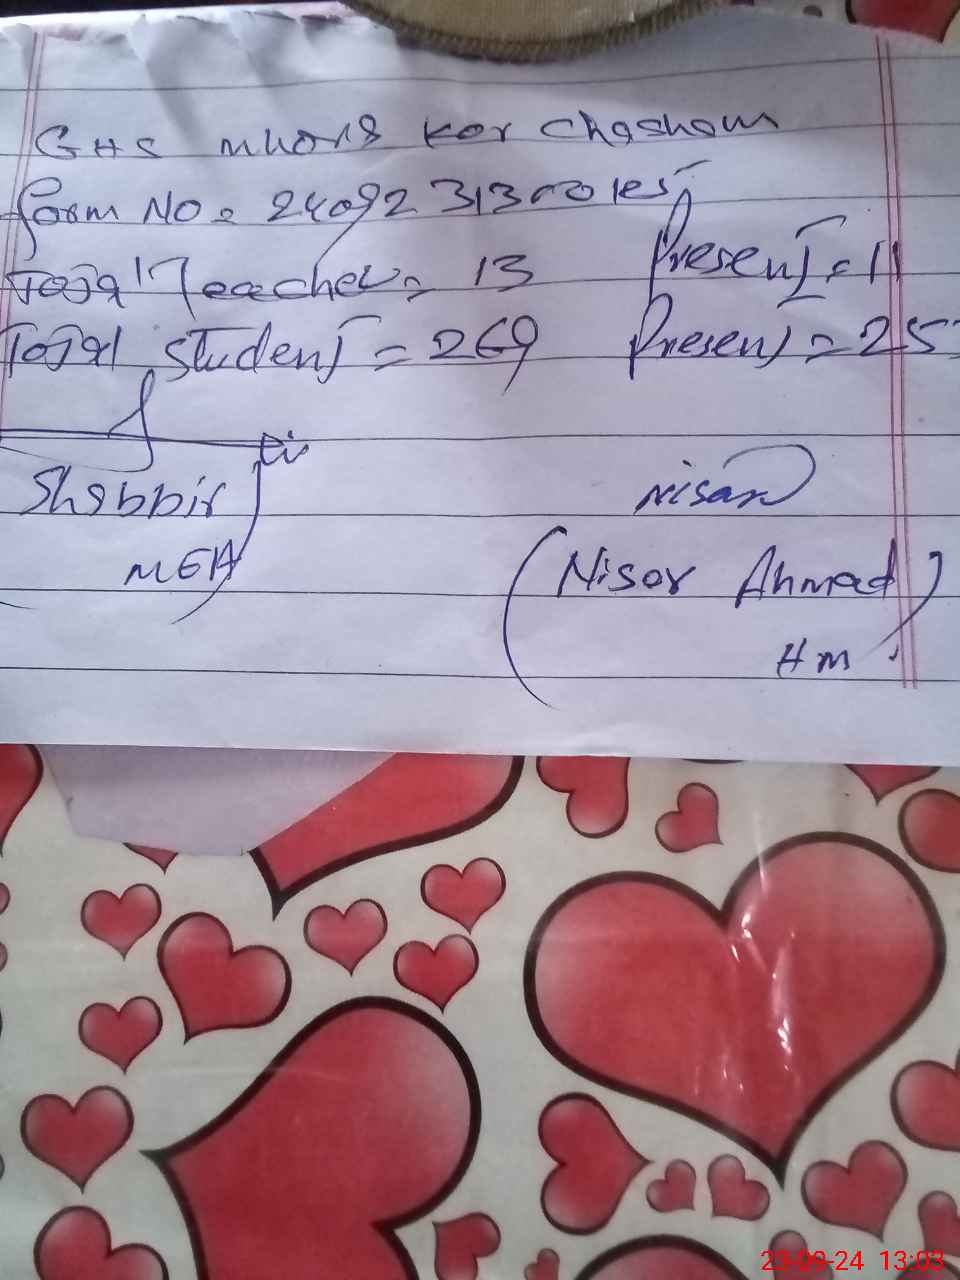 GHS Kor Chasham
form No = 24092313001es
Total Teacher = 13 Present = 11
Total Student = 269 Present = 25
Shabbir
MEA
Nisar
(Nisar Ahmad)
HM
23-09-24 13:03